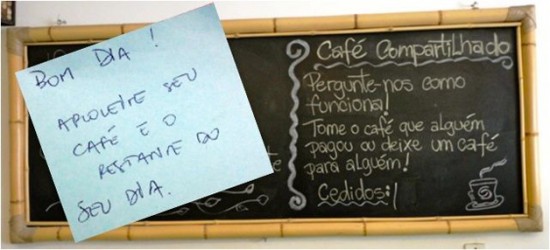 BOM DIA!
APROVEITE SEU
CAFÉ E O
RESTANTE DO
SEU DIA.
Café Compartilhado
Pergunte-nos como
funciona!
Tome o café que alguém
pagou ou deixe um café
para alguém!
Cedidos: